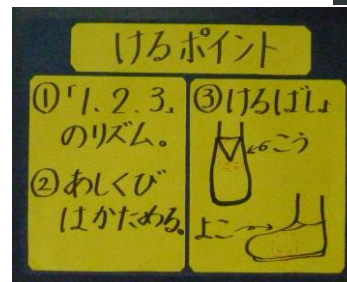 けるポイント
①「1.2.3」
のリズム。
②あしくび
はかためる。
③けるばしょ
こう
よこ